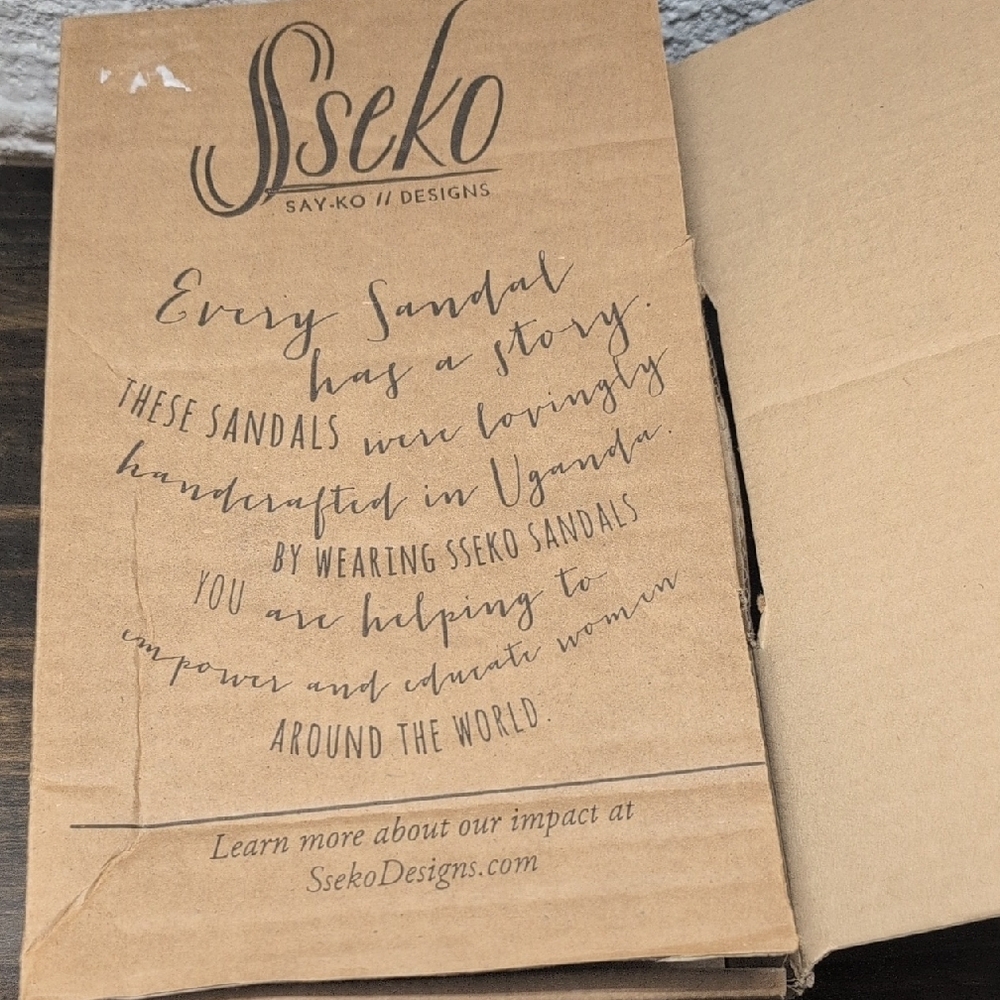 Sseko
SAY-KO // DESIGNS
Every Sandal
has a story.
THESE SANDALS were lovingly
handcrafted in Uganda.
BY WEARING SSEKO SANDALS
YOU are helping to
empower and educate women
AROUND THE WORLD.
Learn more about our impact at
SsekoDesigns.com